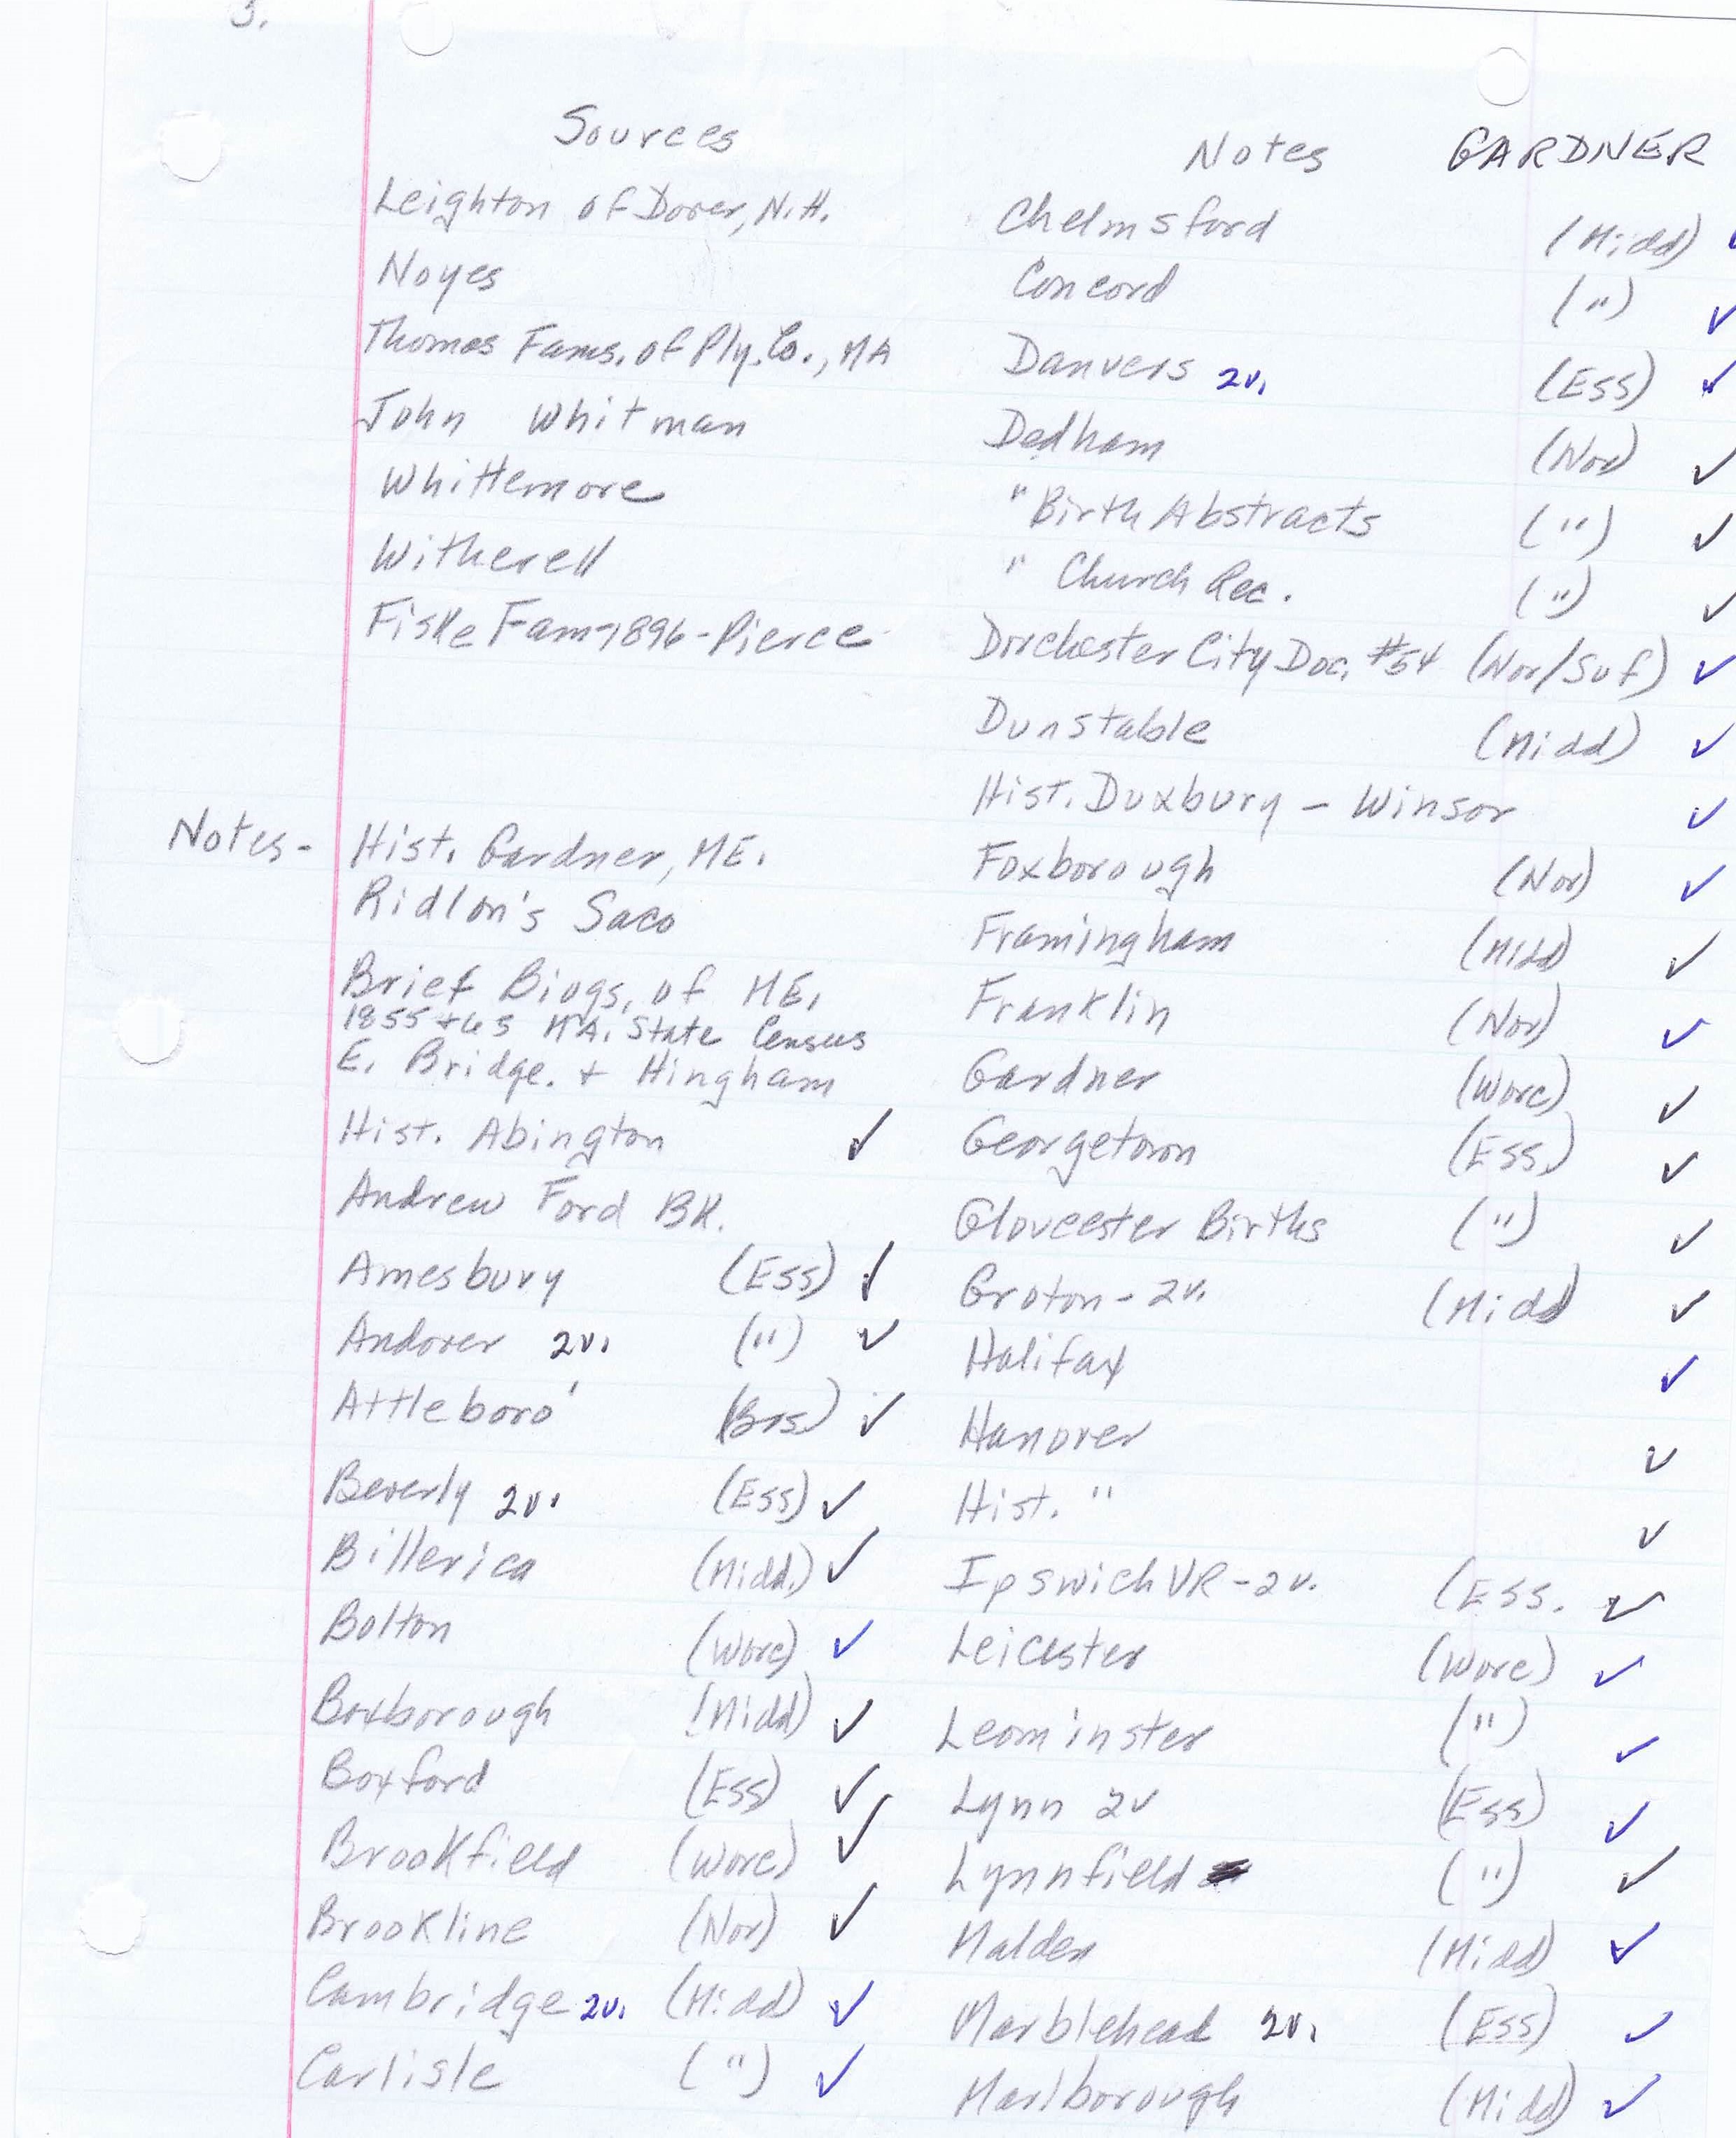 3.
Sources
Leighton of Dover, N.H.
Noyes
Thomas Fams. of Ply. Co., MA
John Whitman
Whittemore
Witherell
Fiske Fam-1896-Pierce
Notes- Hist. Gardner, ME.
Ridlon's Saco
Brief Biogs. of ME.
1855 + 65 MA. State Census
E. Bridge. + Hingham
Hist. Abington ✓
Andrew Ford BK.
Amesbury (Ess) ✓
Andover 2v. (") ✓
Attleboro' (Brs.) ✓
Beverly 2v. (Ess) ✓
Billerica (Midd.) ✓
Bolton (Worc) ✓
Boxborough (Midd) ✓
Boxford (Ess) ✓
Brookfield (Worc) ✓
Brookline (Nor) ✓
Cambridge 2v. (Midd) ✓
Carlisle (") ✓
Notes GARDNER
Chelmsford (Midd) ✓
Concord (") ✓
Danvers 2v. (Ess) ✓
Dedham (Nor) ✓
" Birth Abstracts (") ✓
" Church Rec. (") ✓
Dorchester City Doc. #54 (Nor/Suf) ✓
Dunstable (Midd) ✓
Hist. Duxbury - Winsor ✓
Foxborough (Nor) ✓
Framingham (Midd) ✓
Franklin (Nor) ✓
Gardner (Worc) ✓
Georgetown (Ess.) ✓
Gloucester Births (") ✓
Groton - 2v. (Midd) ✓
Halifax ✓
Hanover ✓
Hist. " ✓
Ipswich VR - 2v. (Ess. ✓
Leicester (Worc) ✓
Leominster (") ✓
Lynn 2v (Ess) ✓
Lynnfield (") ✓
Malden (Midd) ✓
Marblehead 2v. (Ess) ✓
Marlborough (Midd) ✓